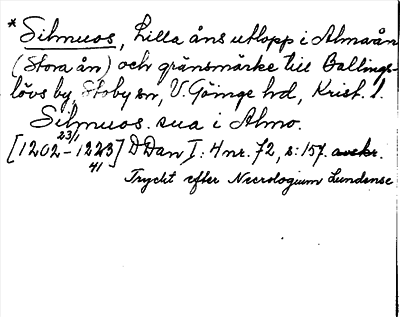 * Silmuos, Lilla åns utlopp i Almaån
(Stora ån) och gränsmärke till Ballings-
lövs by, Stoby sn, V. Göinge hd, Krist. l.
Silmuos. sua i Almo.
[1202 - 23/1 1223] DDan I: 4 nr. 72, s: 157. avskr.
41
Tryckt efter Necrologium Lundense